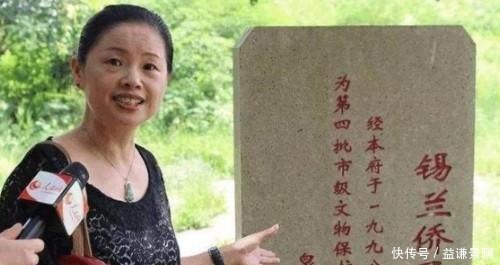 锡兰侨
经本府于一九九
为第四批市级文物保
泉
人民网
快传号 / 益谦